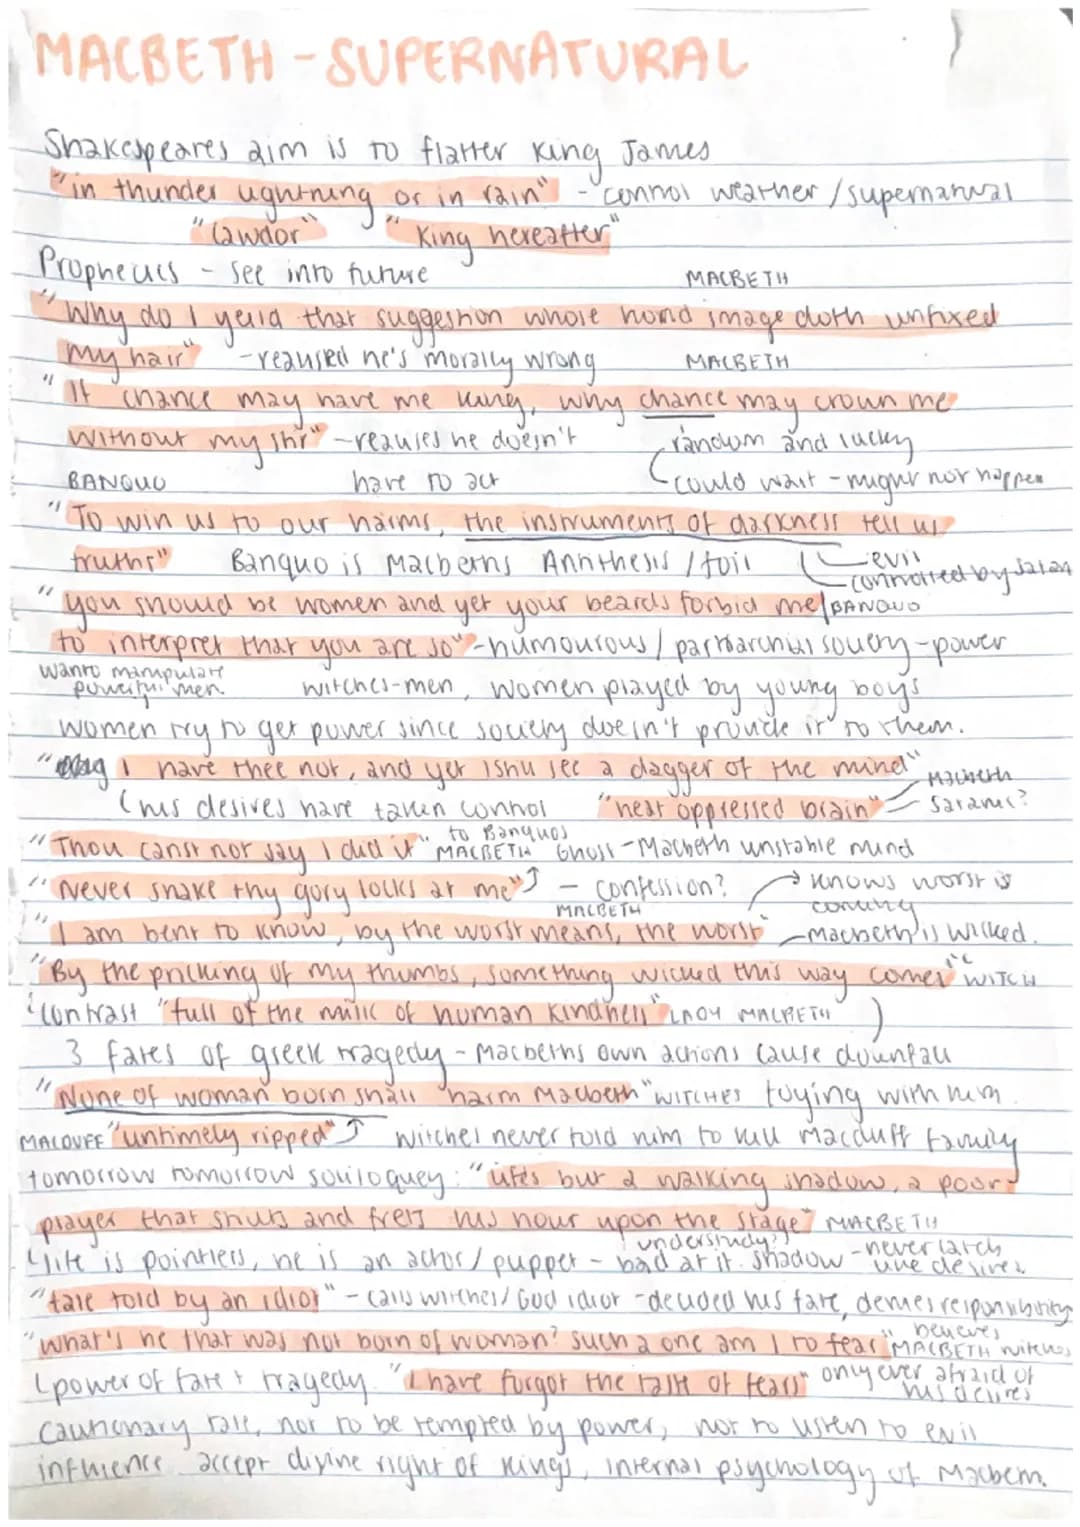 MACBETH - SUPERNATURAL
Shakespeares aim is to flatter King James
"in thunder lightning or in rain" - control weather / supernatural
"Cawdor" "King hereafter"
Prophecies - see into future MACBETH
"Why do I yeild that suggestion whose horrid image doth unfixed
my hair" - realised he's morally wrong MACBETH
"If chance may have me king, why chance may crown me
without my stir" - realises he doesn't random and lucky
BANQUO have to act could wait - might not happen
"To win us to our harms, the instruments of darkness tell us
truths" Banquo is Macbeths Antithesis / foil evil
controlled by Satan
"you should be women and yet your beards forbid me BANQUO
to interpret that you are so" - humourous / patriarchial society - power
want to manipulate
powerful men. witches - men, women played by young boys
women try to get power since society doesn't provide it to them.
" I have thee not, and yet I still see a dagger of the mind"
his desires have taken control "heat oppressed brain" Macbeth
Satanic?
"Thou canst not say I did it" to Banquos
MACBETH Ghost - Macbeth unstable mind
"Never shake thy gory locks at me" - confession? knows worst is
MACBETH coming
"I am bent to know, by the worst means, the worst" - Macbeth is wicked.
"By the pricking of my thumbs, something wicked this way comes" WITCH
contrast "full of the milk of human kindness" LADY MACBETH
3 fates of greek tragedy - Macbeths own actions cause downfall
"None of woman born shall harm Macbeth" WITCHES toying with him.
MACDUFF "untimely ripped" witches never told him to kill Macduff family
tomorrow tomorrow soliloquey: "lifes but a walking shadow, a poor
player that struts and frets his hour upon the stage" MACBETH
understudy?
life is pointless, he is an actor / puppet - bad at it. shadow - never catch
like desires
"tale told by an idiot" - calls witches / God idiot - decided his fate, denies responsibility
"what's he that was not born of woman? such a one am I to fear" believes
MACBETH witches
power of fate + tragedy. "I have forgot the taste of fears" only ever afraid of
his desires
cautionary tale, not to be tempted by power, not to listen to evil
influence accept divine right of kings, internal psychology of Macbeth.